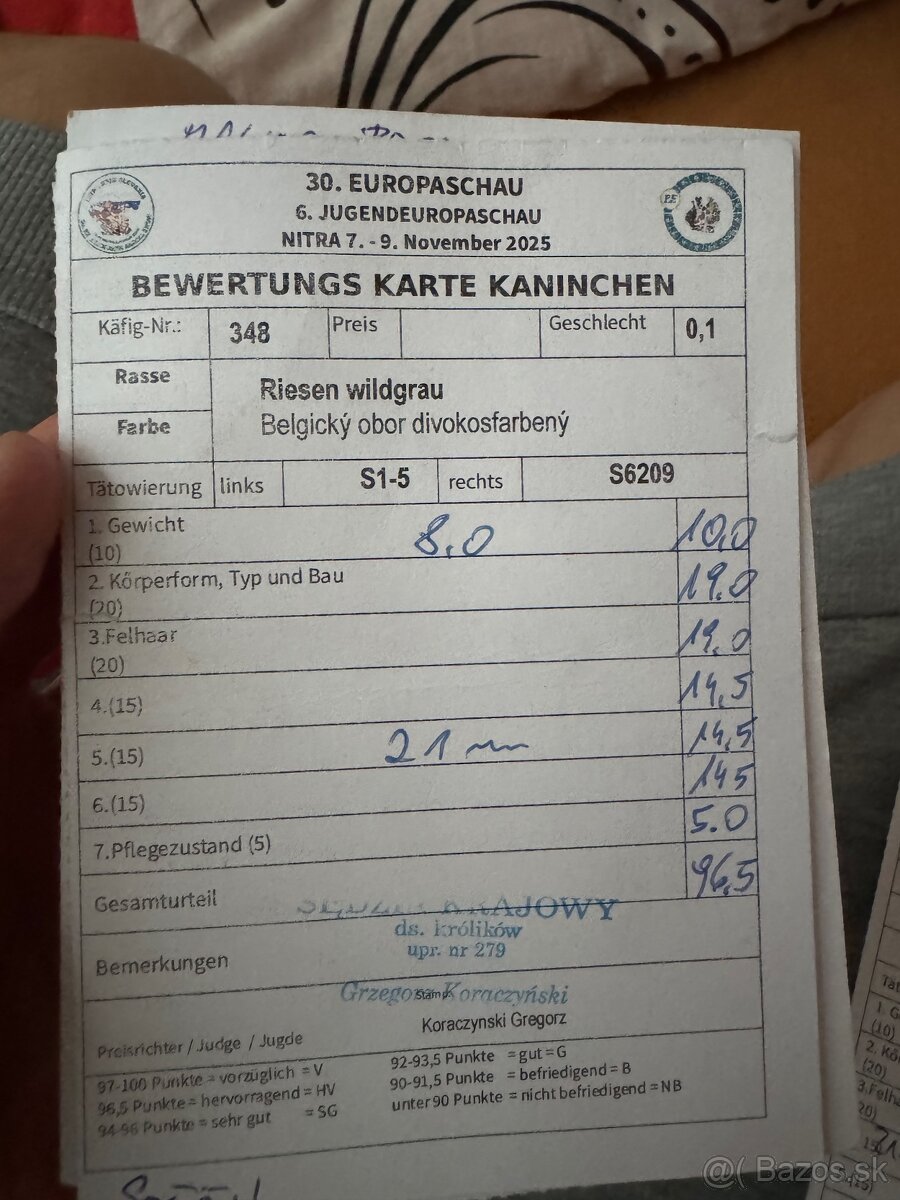 30. EUROPASCHAU
6. JUGENDEUROPASCHAU
NITRA 7. - 9. November 2025
BEWERTUNGS KARTE KANINCHEN
Käfig-Nr.: 348 Preis Geschlecht 0,1
Rasse
Riesen wildgrau
Farbe
Belgický obor divokosfarbený
Tätowierung links S1-5 rechts S6209
1. Gewicht
(10) 8,0 10,0
2. Körperform, Typ und Bau
(20) 19.0
3.Felhaar
(20) 19,0
4.(15) 14,5
5.(15) 21 mm 14,5
6.(15) 145
7.Pflegezustand (5) 5.0
Gesamturteil 96,5
SĘDZIA KRAJOWY
ds. królików
upr. nr 279
Bemerkungen
Grzegorz Koraczyński
Stamp
Koraczynski Gregorz
Preisrichter / Judge / Jugde
97-100 Punkte = vorzüglich = V
96,5 Punkte = hervorragend = HV
94-96 Punkte = sehr gut = SG
92-93,5 Punkte = gut = G
90-91,5 Punkte = befriedigend = B
unter 90 Punkte = nicht befriedigend = NB
@( Bazos.sk